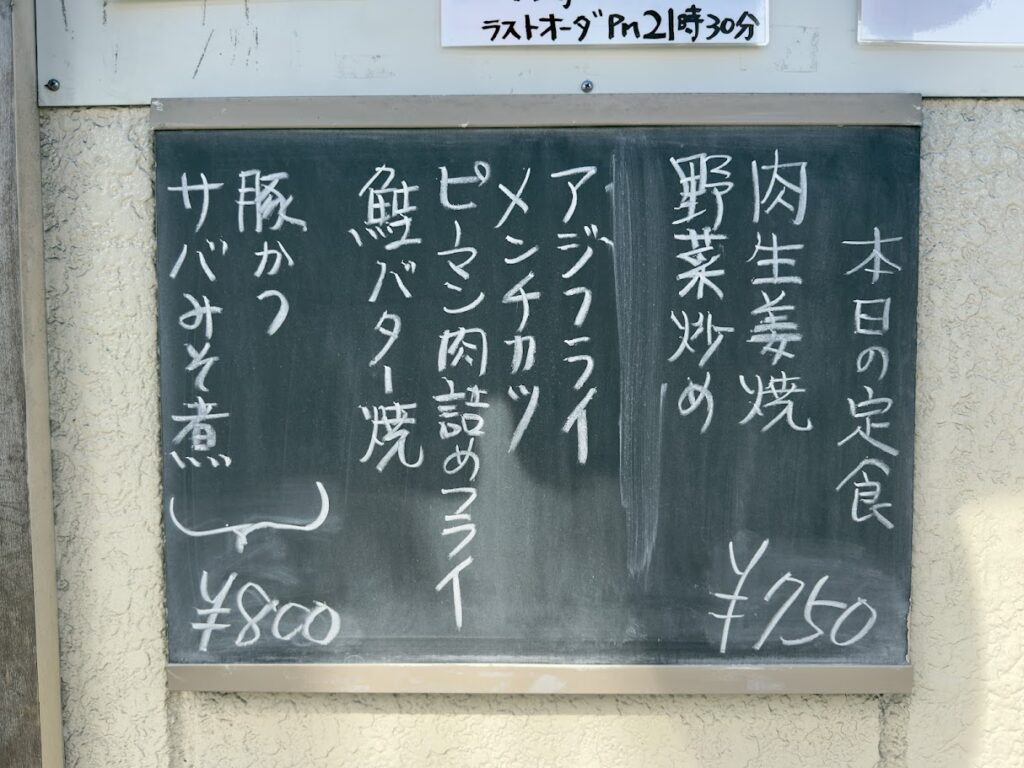 ラストオーダPm21時30分
本日の定食
肉生姜焼
野菜炒め
¥750
アジフライ
メンチカツ
ピーマン肉詰めフライ
鮭バター焼
豚かつ
サバみそ煮
¥800